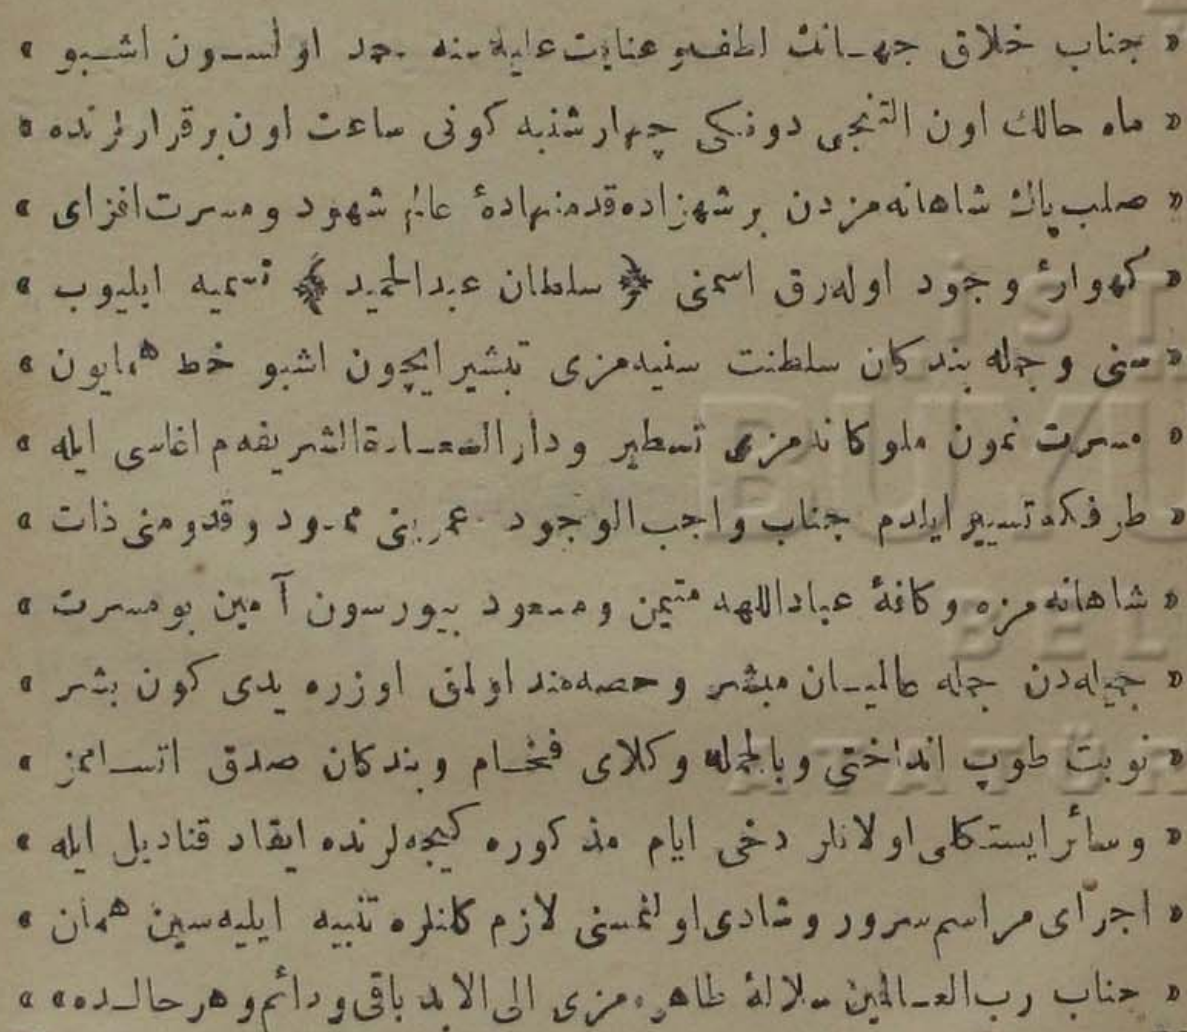 « جناب خلاق جهانك لطف و عنايت عليه سنه حمد اولسون اشبو »
« ماه حالك اون التنجى دونكى چهارشنبه كونى ساعت اون بر قرارلرنده »
« صلب پاك شاهانه مزدن بر شهزاده قدمنهادۀ عالم شهود و مسرت افزاى »
« كهوارۀ وجود اوله رق اسمنى ﴿ سلطان عبدالحميد ﴾ تسميه ايليوب »
« سنى و جمله بندكان سلطنت سنيه مزى تبشير ايچون اشبو خط همايون »
« مسرت نمون ملوكانه مزى تسطير و دارالسعادة الشريفه م اغاسى ايله »
« طرفكه تسيير ايلدم جناب واجب الوجود عمرينى ممدود و قدومنى ذات »
« شاهانه مزه و كافۀ عباداللهه متيمن و مسعود بيورسون آمين بو مسرت »
« جميله دن جمله عالميان مبشر و حصه مند اولمق اوزره يدى كون بشر »
« نوبت طوپ انداختى و بالجمله وكلاى فخام و بندكان صدق اتسامز »
« و سائر ايستكلى اولانلر دخى ايام مذكوره كيجه لرنده ايقاد قناديل ايله »
« اجراى مراسم سرور و شادى اولنمسنى لازم كلنلره تنبيه ايليه سين همان »
« جناب رب العالمين سلالۀ طاهره مزى الى الابد باقى و دائم و هر حالده »
İST
BÜYÜ
BEL
ATATÜR